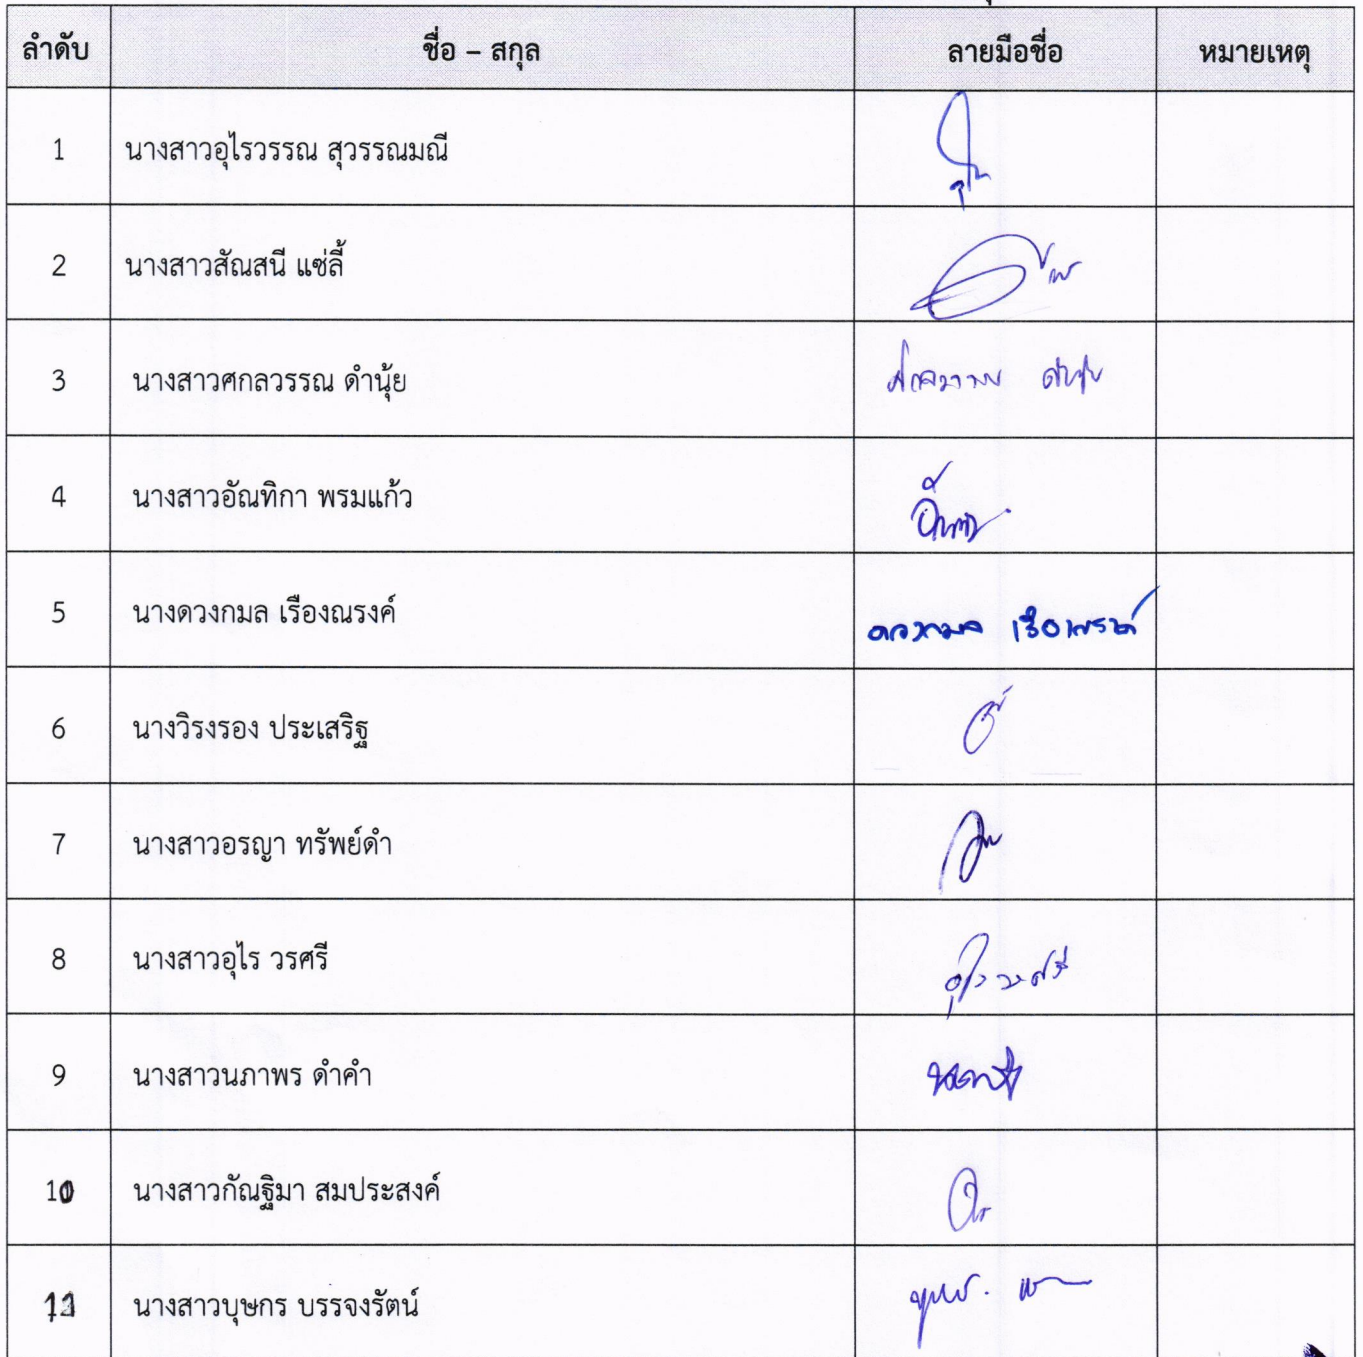 ลำดับ ชื่อ – สกุล ลายมือชื่อ หมายเหตุ
1 นางสาวอุไรวรรณ สุวรรณมณี
2 นางสาวสัณสนี แซ่ลี้
3 นางสาวศกลวรรณ ดำนุ้ย ศกลวรรณ ดำนุ้ย
4 นางสาวอัณทิกา พรมแก้ว
5 นางดวงกมล เรืองณรงค์ ดวงกมล เรืองณรงค์
6 นางวิรงรอง ประเสริฐ
7 นางสาวอรญา ทรัพย์ดำ
8 นางสาวอุไร วรศรี อุไร วรศรี
9 นางสาวนภาพร ดำคำ
10 นางสาวกัณฐิมา สมประสงค์
11 นางสาวบุษกร บรรจงรัตน์